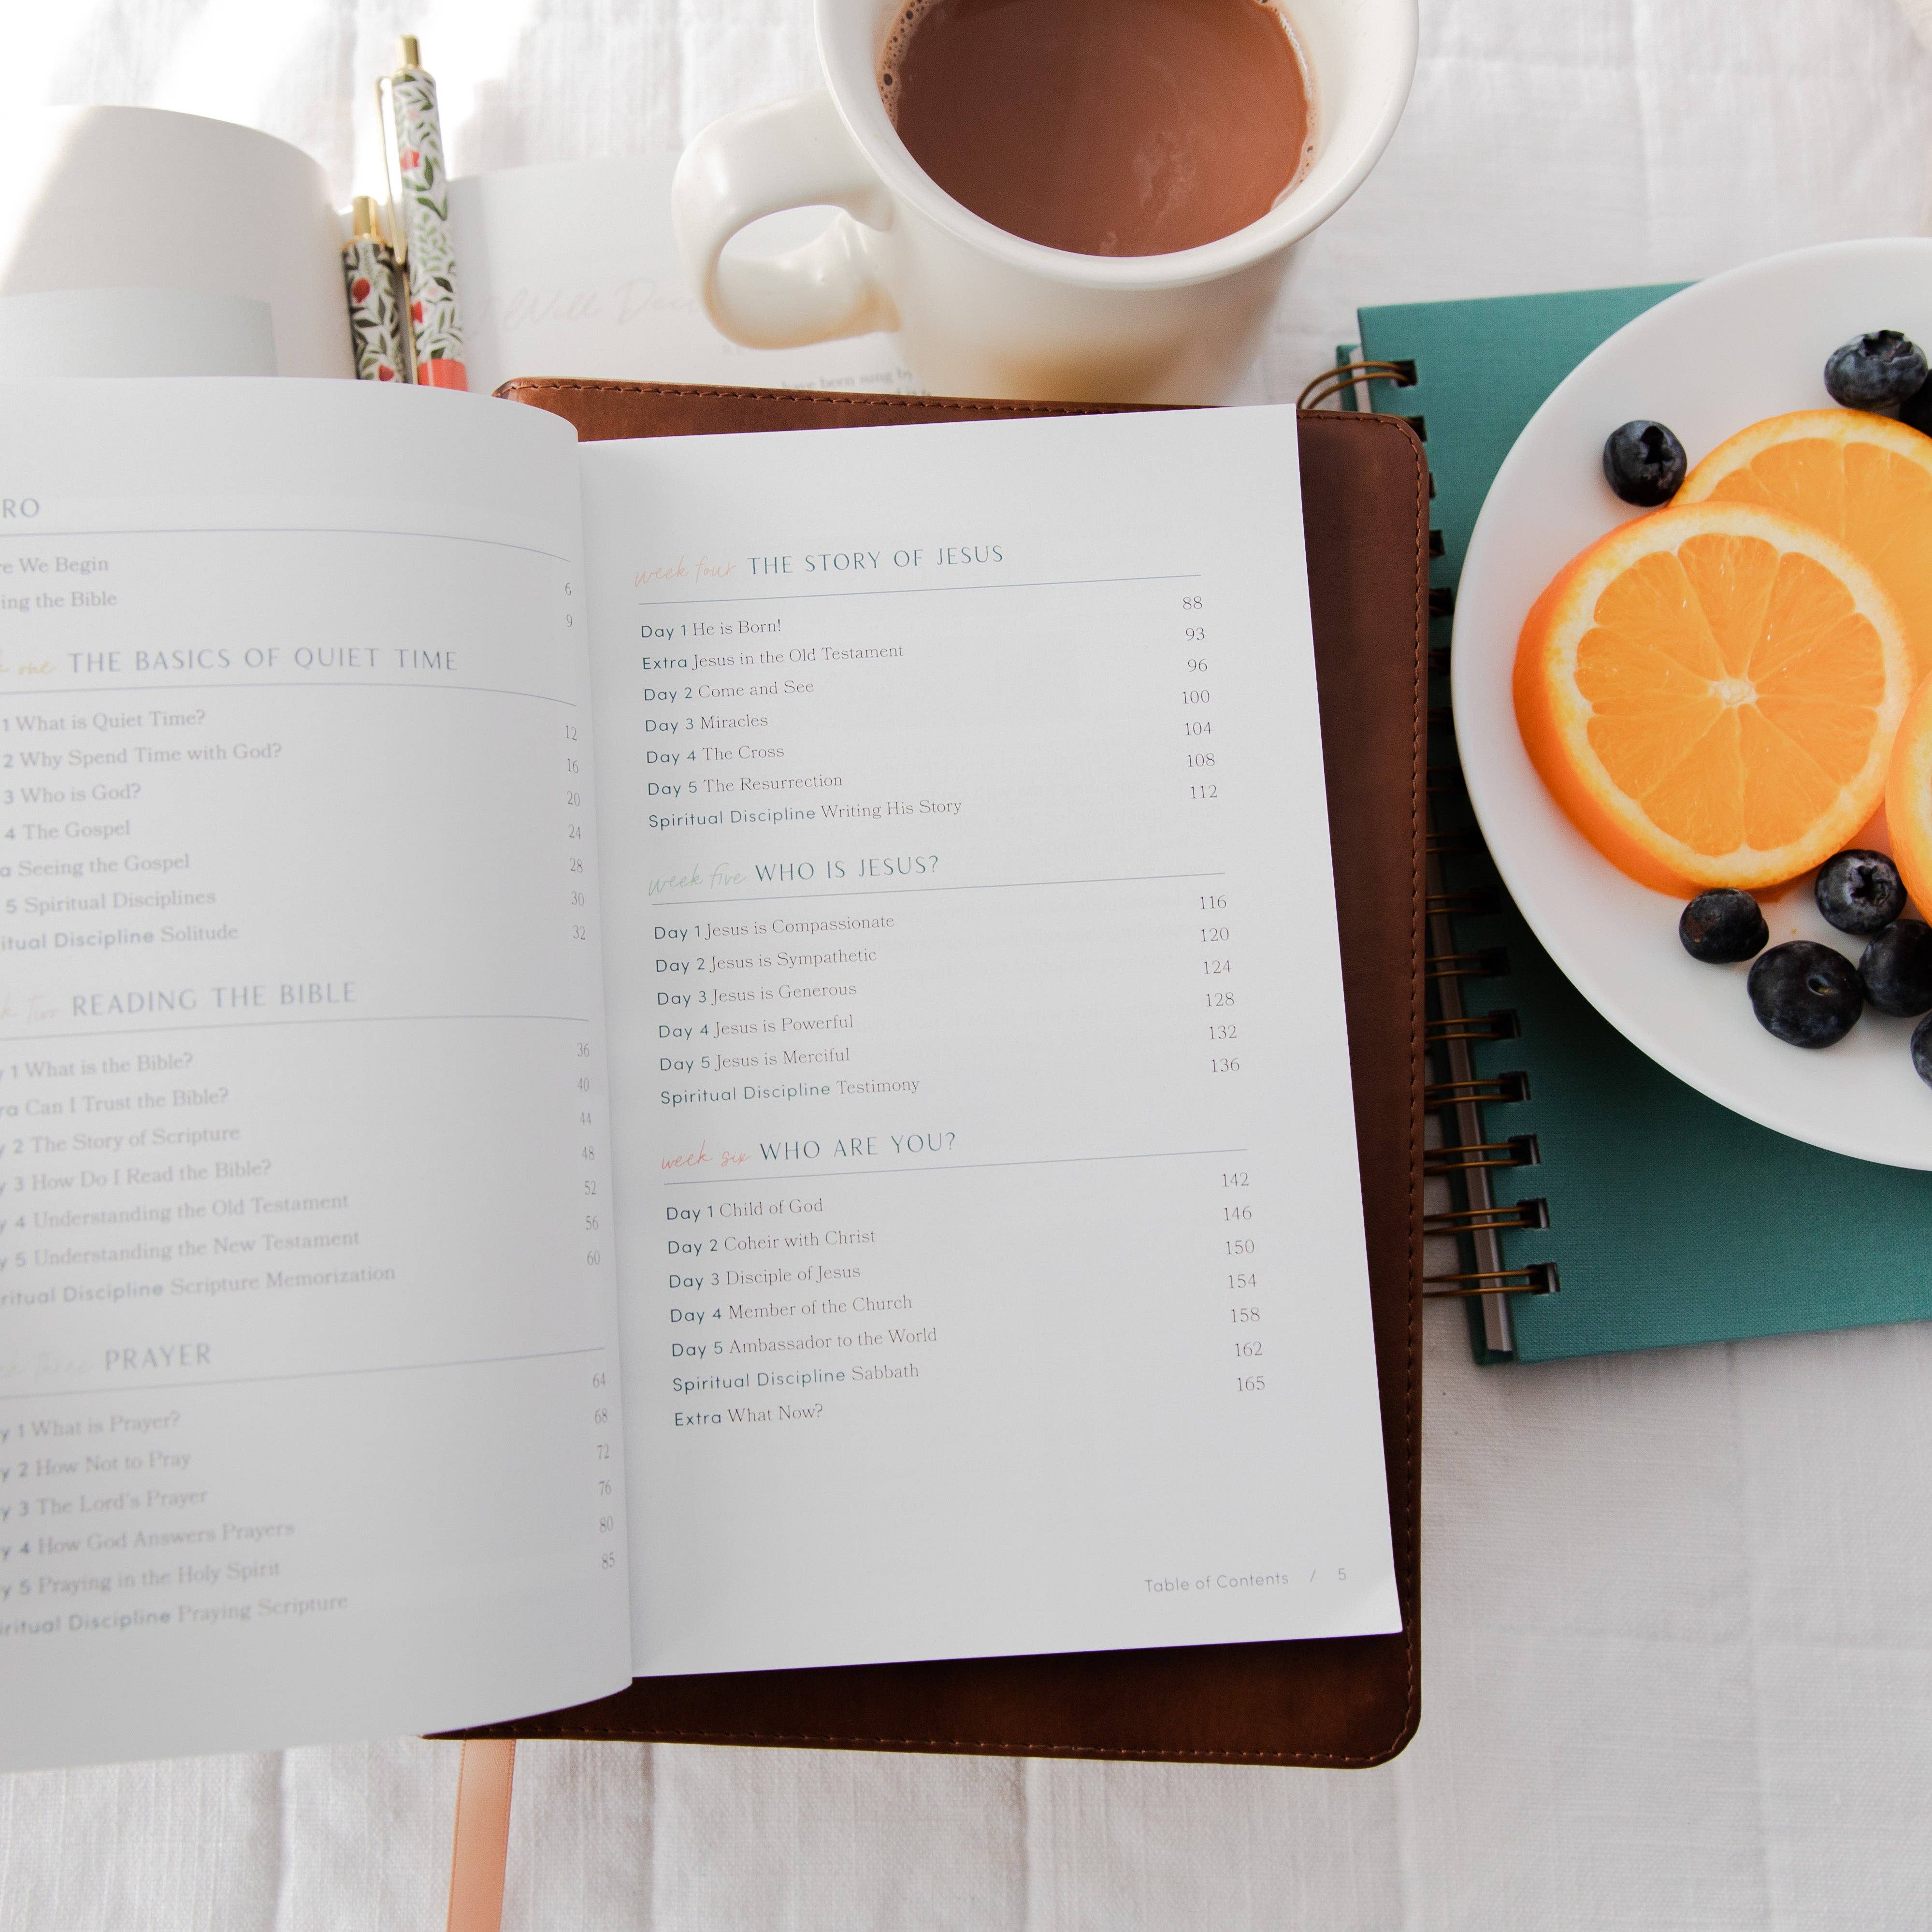 I Will Deci
have been sung by
RO
re We Begin 6
ing the Bible 9
one THE BASICS OF QUIET TIME
1 What is Quiet Time? 12
2 Why Spend Time with God? 16
3 Who is God? 20
4 The Gospel 24
a Seeing the Gospel 28
5 Spiritual Disciplines 30
itual Discipline Solitude 32
k two READING THE BIBLE
y 1 What is the Bible? 36
ra Can I Trust the Bible? 40
y 2 The Story of Scripture 44
y 3 How Do I Read the Bible? 48
y 4 Understanding the Old Testament 52
y 5 Understanding the New Testament 56
ritual Discipline Scripture Memorization 60
three PRAYER
y 1 What is Prayer? 64
y 2 How Not to Pray 68
y 3 The Lord's Prayer 72
y 4 How God Answers Prayers 76
y 5 Praying in the Holy Spirit 80
iritual Discipline Praying Scripture 85
week four THE STORY OF JESUS
Day 1 He is Born! 88
Extra Jesus in the Old Testament 93
Day 2 Come and See 96
Day 3 Miracles 100
Day 4 The Cross 104
Day 5 The Resurrection 108
Spiritual Discipline Writing His Story 112
week five WHO IS JESUS?
Day 1 Jesus is Compassionate 116
Day 2 Jesus is Sympathetic 120
Day 3 Jesus is Generous 124
Day 4 Jesus is Powerful 128
Day 5 Jesus is Merciful 132
Spiritual Discipline Testimony 136
week six WHO ARE YOU?
Day 1 Child of God 142
Day 2 Coheir with Christ 146
Day 3 Disciple of Jesus 150
Day 4 Member of the Church 154
Day 5 Ambassador to the World 158
Spiritual Discipline Sabbath 162
Extra What Now? 165
Table of Contents / 5